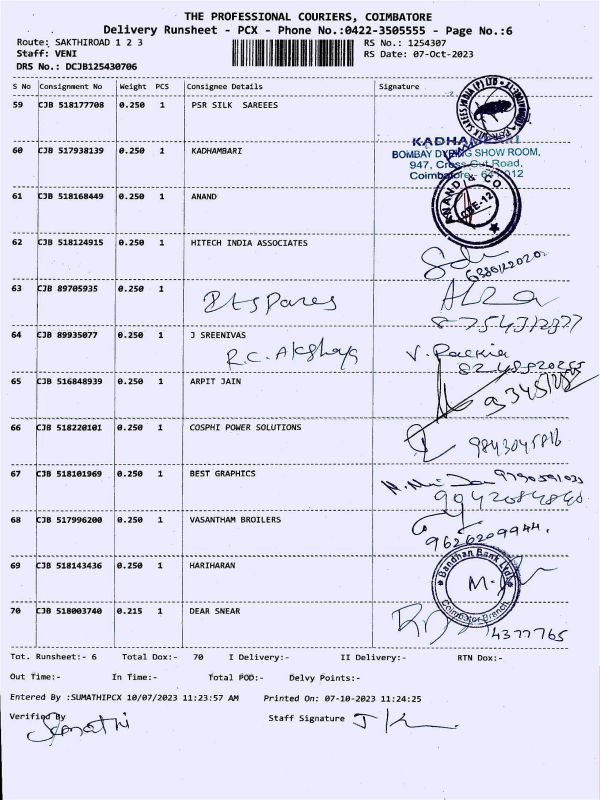 THE PROFESSIONAL COURIERS, COIMBATORE
Delivery Runsheet - PCX - Phone No.:0422-3505555 - Page No.:6
Route: SAKTHIROAD 1 2 3
RS No.: 1254307
Staff: VENI
RS Date: 07-Oct-2023
DRS No.: DCJB125430706
S No Consignment No Weight PCS Consignee Details Signature
59 CJB 518177708 0.250 1 PSR SILK SAREEES
60 CJB 517938139 0.250 1 KADHAMBARI
BOMBAY DYEING SHOW ROOM,
947, Cross Cut Road,
61 CJB 518168449 0.250 1 ANAND
ANAND & CO
CBE-12
62 CJB 518124915 0.250 1 HITECH INDIA ASSOCIATES
63 CJB 89705935 0.250 1
64 CJB 89935077 0.250 1 J SREENIVAS
R.C. Akshaya
65 CJB 516848939 0.250 1 ARPIT JAIN
66 CJB 518220101 0.250 1 COSPHI POWER SOLUTIONS
9843045816
67 CJB 518101969 0.250 1 BEST GRAPHICS
68 CJB 517996200 0.250 1 VASANTHAM BROILERS
9626209944.
69 CJB 518143436 0.250 1 HARIHARAN
Bandhan Bank Ltd
Coimbatore Branch
70 CJB 518003740 0.215 1 DEAR SNEAR
4377765
Tot. Runsheet:- 6 Total Dox:- 70 I Delivery:- II Delivery:- RTN Dox:-
Out Time:- In Time:- Total POD:- Delvy Points:-
Entered By :SUMATHIPCX 10/07/2023 11:23:57 AM Printed On: 07-10-2023 11:24:25
Verified By
Staff Signature